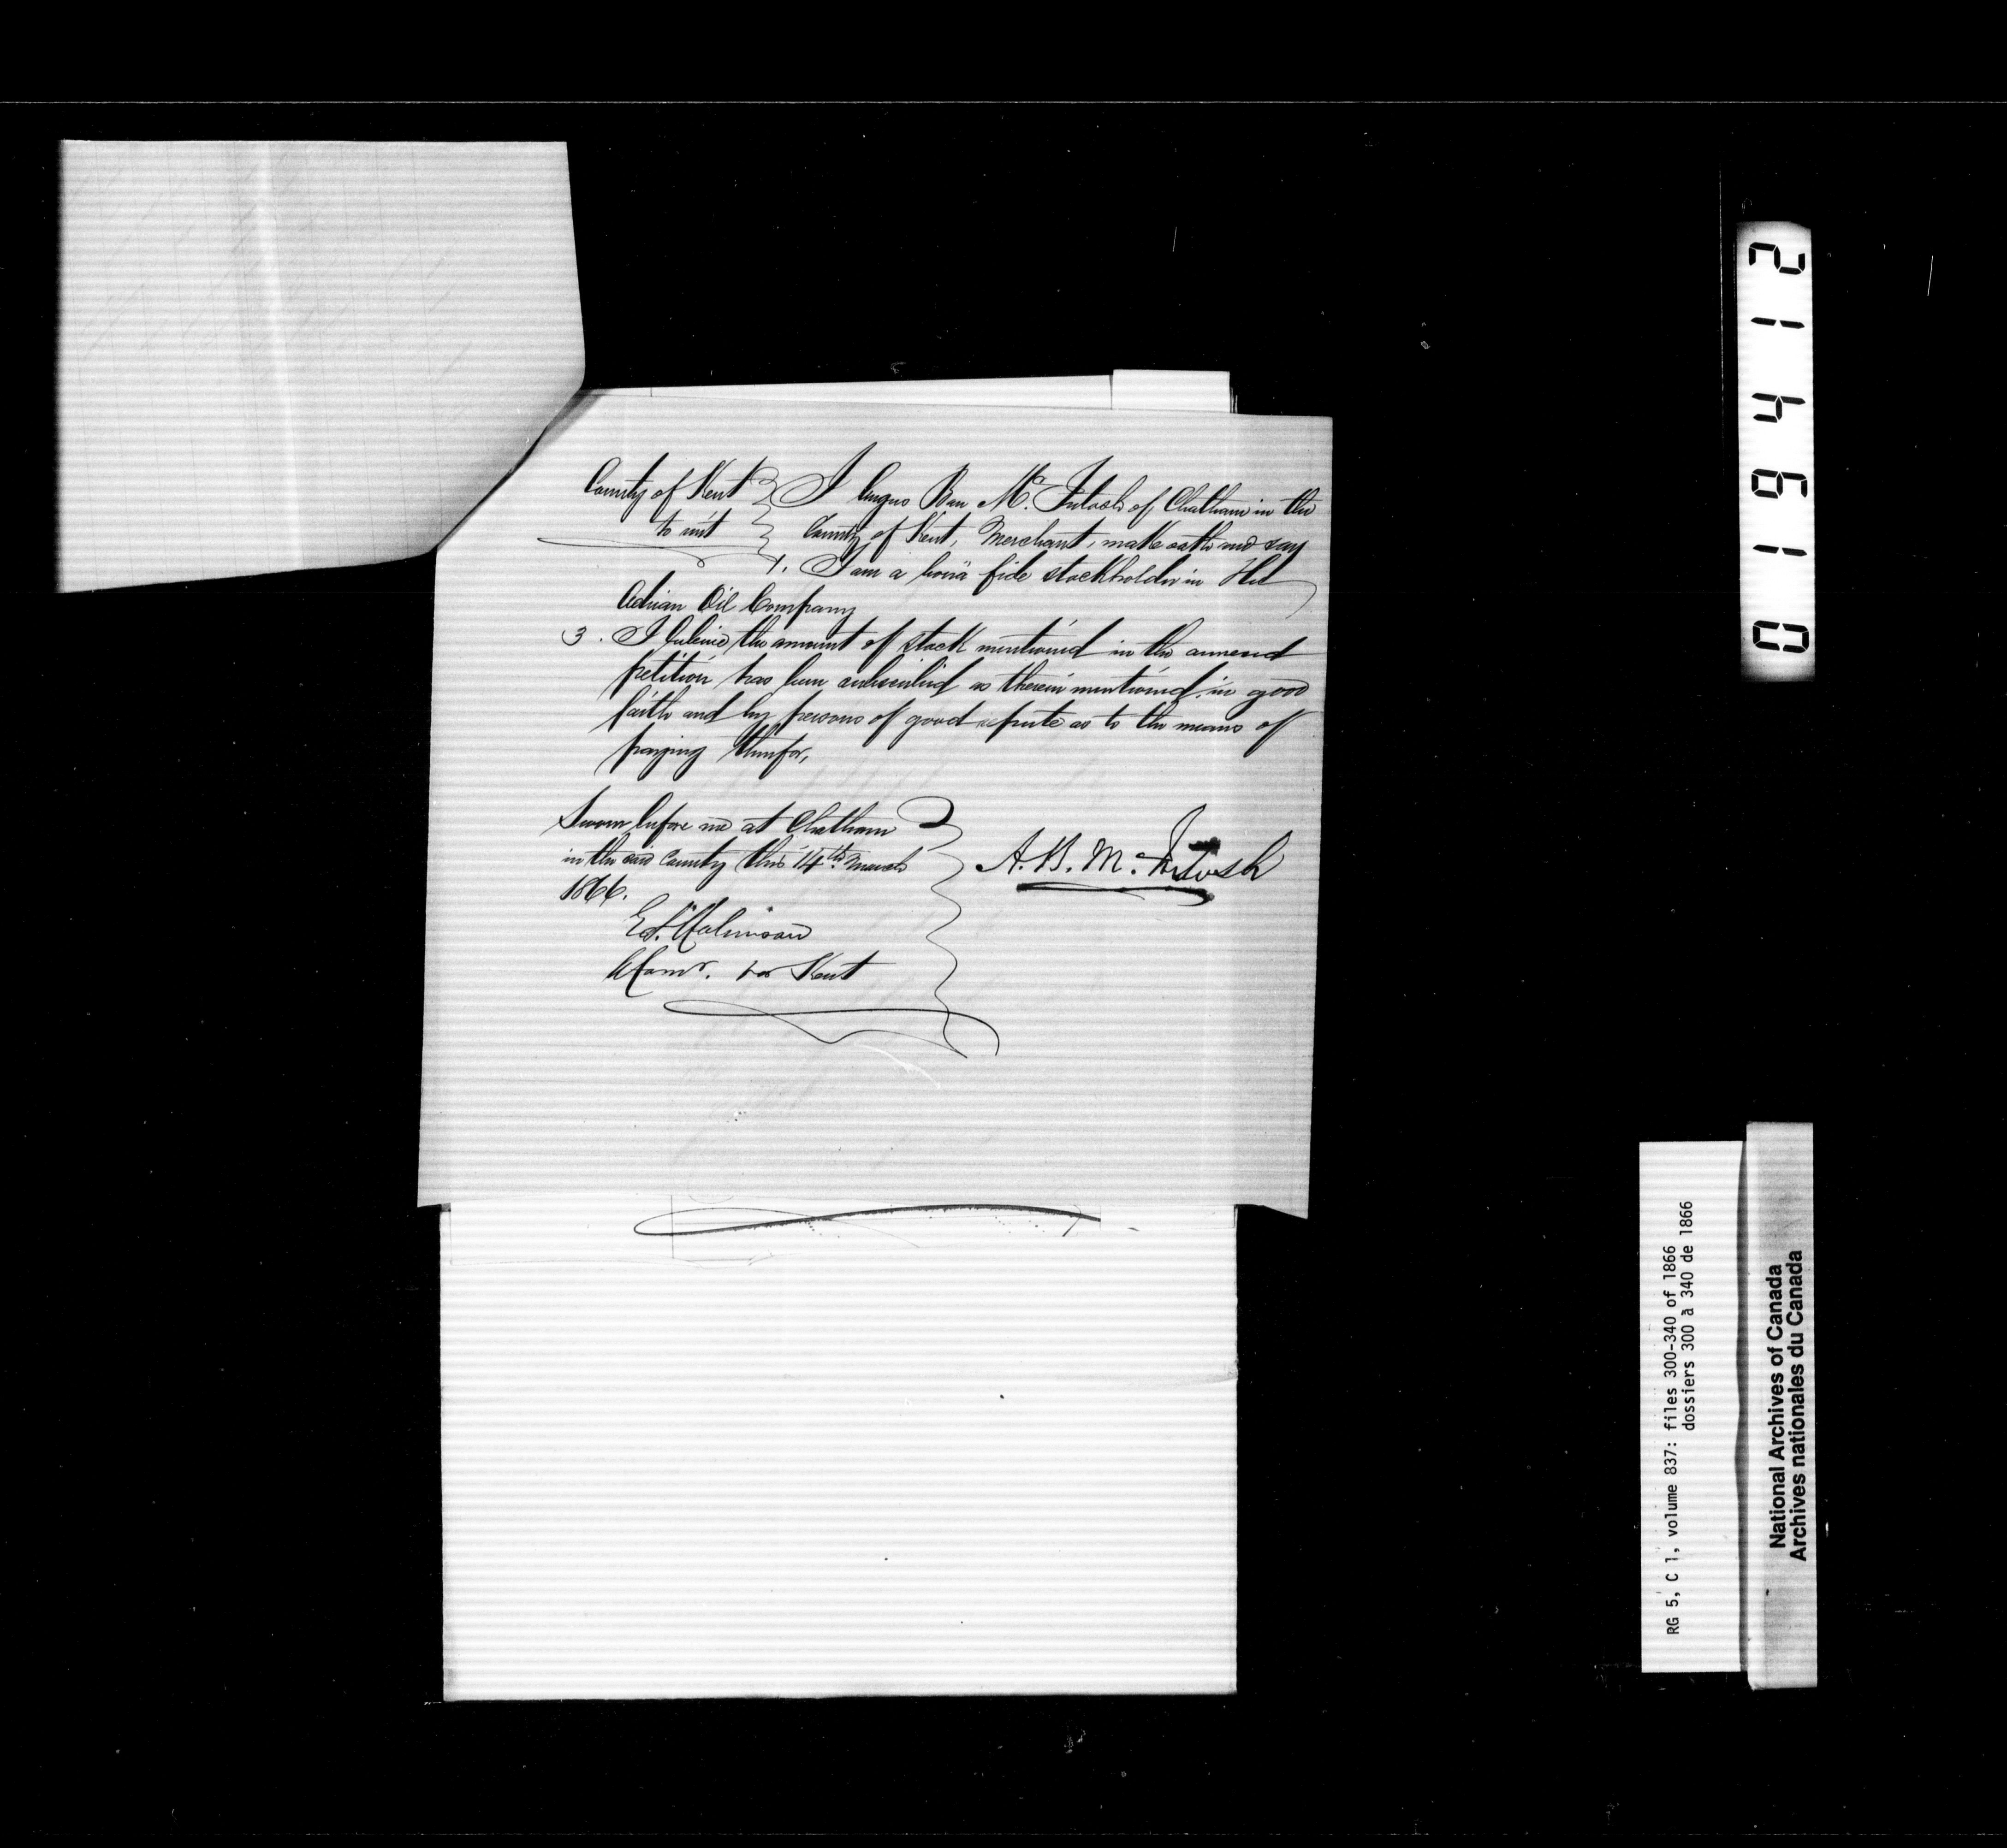 County of Kent } I Angus Ban McIntosh of Chatham in the
to wit } County of Kent, Merchant, make oath and say
1. I am a bonâ fide stockholder in The
Adrian Oil Company
3. I believe the amount of stock mentioned in the annexed
petition has been subscribed as therein mentioned in good
faith and by persons of good repute as to the means of
paying therefor,
Sworn before me at Chatham
in the said County this 14th March
1866.
A. B. McIntosh
Ed. Robinson
A Comr. for Kent
019412
RG 5, C 1, volume 837: files 300-340 of 1866
dossiers 300 à 340 de 1866
National Archives of Canada
Archives nationales du Canada